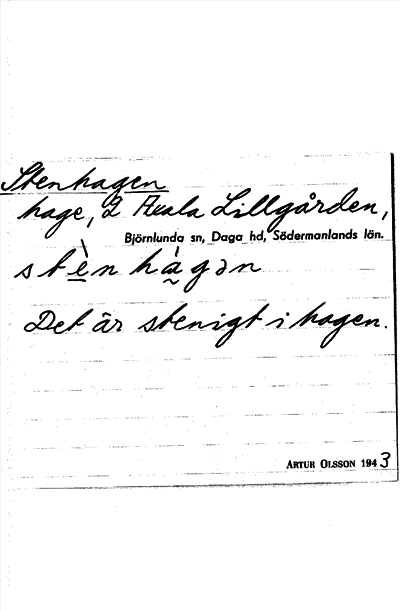 Stenhagen
hage, 2 Axala Lillgården,
Björnlunda sn, Daga hd, Södermanlands län.
stè̠n hà̰gən
Det är stenigt i hagen.
ARTUR OLSSON 1943